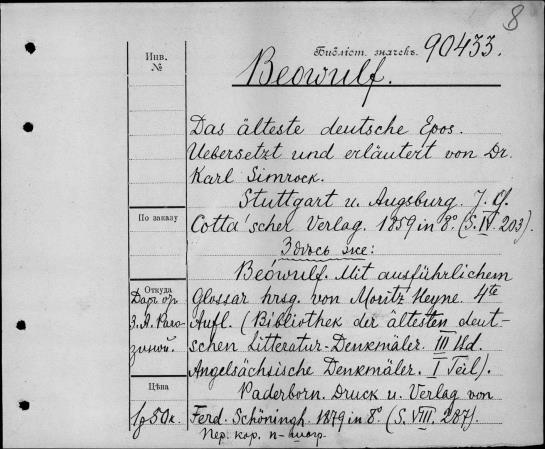 8
Инв.
№
Библіот. значекъ. 90433.
Beowulf.
Das älteste deutsche Epos.
Uebersetzt und erläutert von Dr.
Karl Simrock.
Stuttgart u. Augsburg. J. G.
По заказу
Cotta'scher Verlag. 1859 in 8° (S. IV. 203).
Здѣсь же:
Beówulf. Mit ausführlichem
Откуда
Даръ отъ
З. А. Раго-
зиной.
Glossar hrsg. von Moritz Heyne. 4te
Aufl. (Bibliothek der ältesten deut-
schen Litteratur-Denkmäler. III Bd.
Angelsächsische Denkmäler. I Teil).
Paderborn. Druck u. Verlag von
Цѣна
1р 50к.
Ferd. Schöningh. 1879 in 8° (S. VIII. 287).
Пер. кор. п-